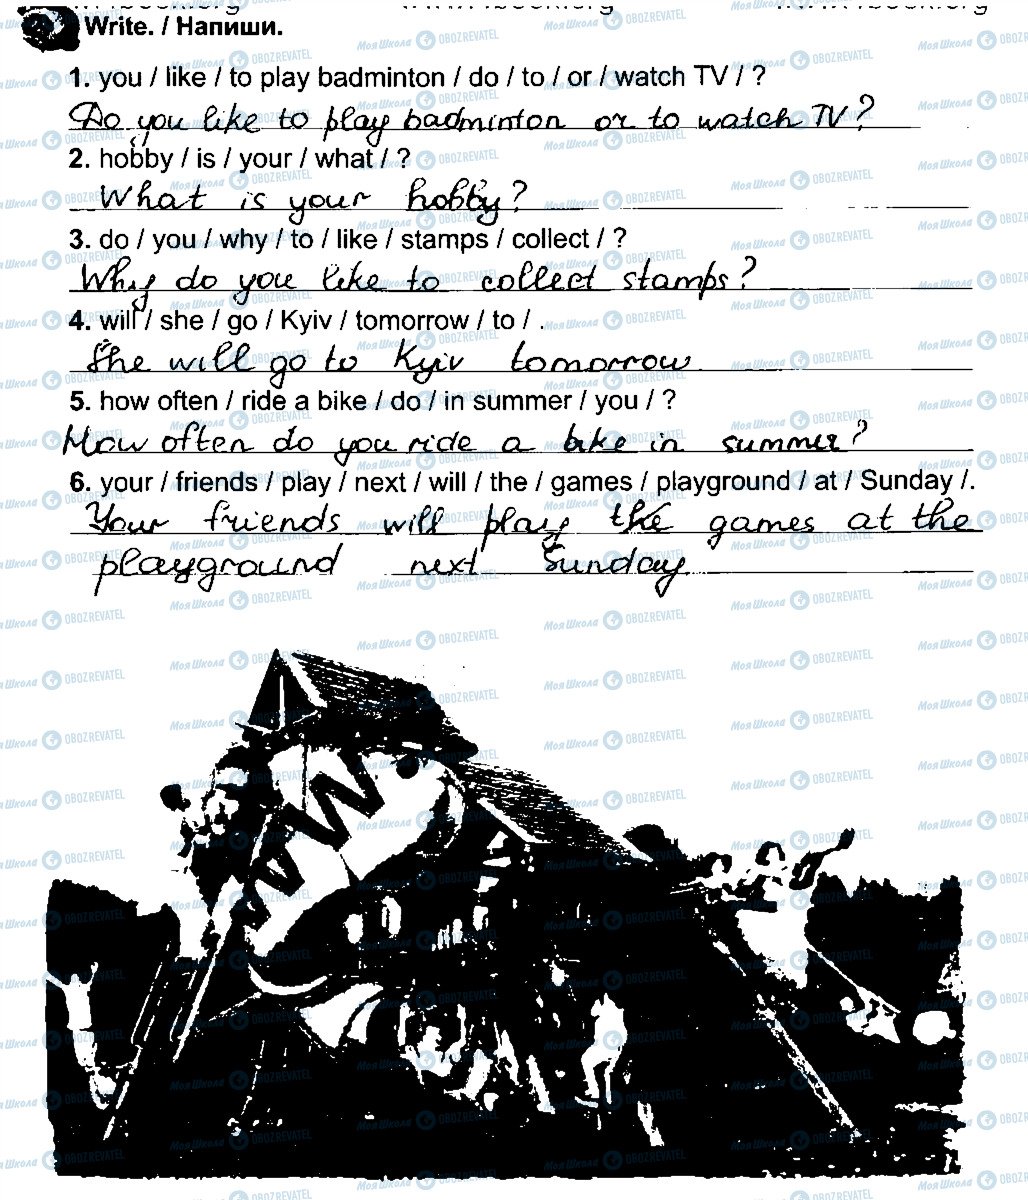 Write. / Напиши.
1. you / like / to play badminton / do / to / or / watch TV / ?
Do you like to play badminton or to watch TV?
2. hobby / is / your / what / ?
What is your hobby?
3. do / you / why / to / like / stamps / collect / ?
Why do you like to collect stamps?
4. will / she / go / Kyiv / tomorrow / to / .
She will go to Kyiv tomorrow
5. how often / ride a bike / do / in summer / you / ?
How often do you ride a bike in summer?
6. your / friends / play / next / will / the / games / playground / at / Sunday /.
Your friends will play the games at the
playground next Sunday
Моя Школа OBOZREVATEL